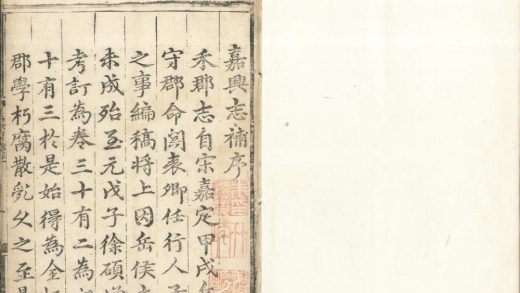 嘉興志補序
禾郡志自宋嘉定甲戌
守郡命聞衷卿任行人子
之事編稿將上因岳侯
未成殆至元戊子徐碩
考訂為卷三十有二為
十有三於是始得為全
郡學朽腐散乱久之至